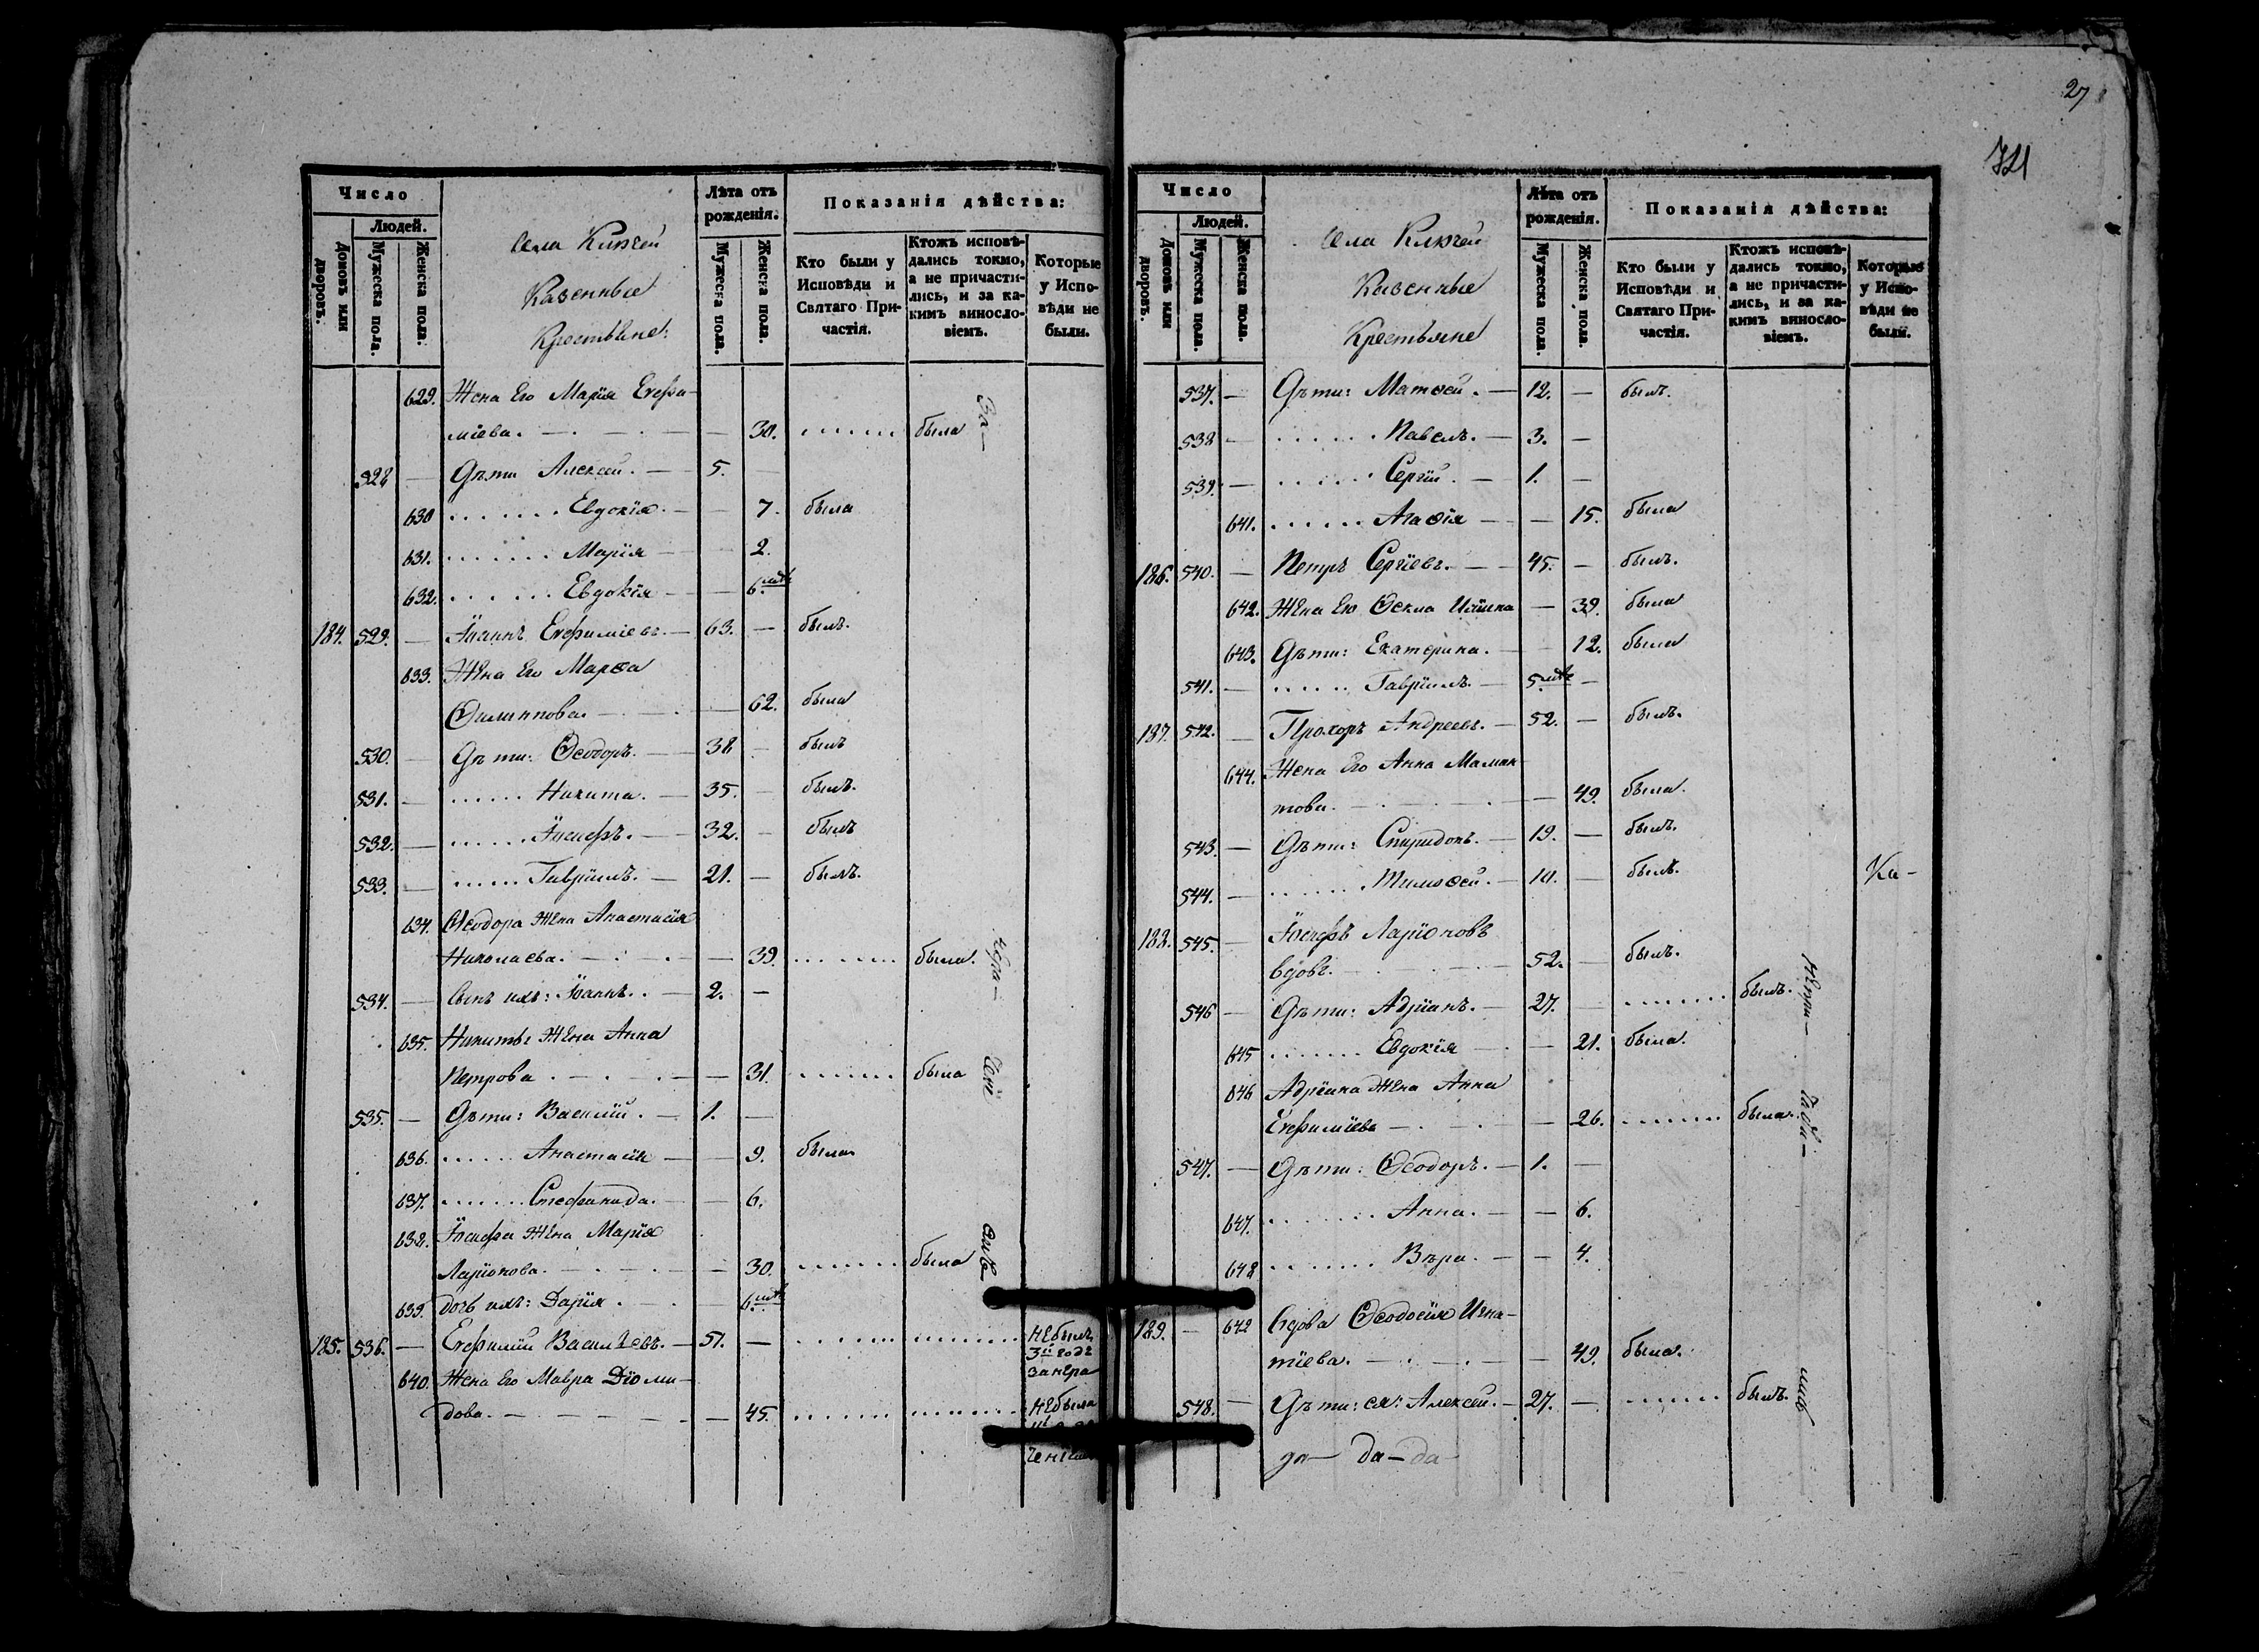 27
Число
Людей.
Домовъ или дворовъ.
Мужеска пола.
Женска пола.
Села Ключей
Казенные
Крестьяне.
Лѣта отъ рожденія.
Мужеска пола.
Женска пола.
Показанія дѣйства:
Кто были у Исповѣди и Святаго Причастія.
Ктожъ исповѣдались токмо, а не причастились, и за какимъ винословіемъ.
Которые у Исповѣди не были.
629. Жена Его Марія Евфи-
міева. — 30. ...... была За-
528 — Дѣти Алексѣй. — 5. —
630 ....... Евдокія. — 7. была
631. ....... Марія — 2.
632. ...... Евдокія — 6. мѣ
184. 529. — Іоаннъ Евфиміевъ. — 63. — былъ.
633. Жена Его Марѳа
Филиппова. — 62. была
530. — Дѣти: Ѳеодоръ. — 38 — былъ
531. — ...... Никита. — 35. — былъ.
532. — ...... Іосифъ. — 32. — былъ
533. — ...... Гавріилъ. — 21. — былъ.
634. Ѳеодора Жена Анастасія
Николаева. — 39. ...... была.
534. — Сынъ ихъ: Іоаннъ. — 2. —
635. Никиты Жена Анна
Петрова — 31. ...... была
535. — Дѣти: Василій. — 1. —
636. ...... Анастасія — 9. была
637. ...... Стефанида. — 6.
638. Іосифа Жена Марія
Ларіонова. — 30. ...... была
639. дочь ихъ: Дарія. — 6. мѣ
185. 536. — Евфимій Васильевъ. — 51. — ...... ...... Небылъ
3й годъ
занера
640. Жена Его Мавра Діоми-
дова. — 45. ...... ...... Небыла
Число
Людей.
Домовъ или дворовъ.
Мужеска пола.
Женска пола.
Села Ключей
Казенные
Крестьяне
Лѣта отъ рожденія.
Мужеска пола.
Женска пола.
Показанія дѣйства:
Кто были у Исповѣди и Святаго Причастія.
Ктожъ исповѣдались токмо, а не причастились, и за какимъ винословіемъ.
Которые у Исповѣди не были.
537. — Дѣти: Матѳей. — 12. — былъ.
538 — ...... Павелъ. — 3. —
539. — ...... Сергій. — 1. —
641. ...... Агаѳія — 15. была
186. 540. — Петръ Сергіевъ. — 45. — былъ.
642. Жена Его Ѳекла Ильина — 39. была
643. Дѣти: Екатерина. — 12. была
541. — ...... Гавріилъ. — 5. мѣ —
187. 542. — Прохоръ Андреевъ. — 52. — былъ.
644. Жена Его Анна Маман-
това. — 49. была.
543. — Дѣти: Спиридонъ. — 19. — былъ.
544. — ...... Тимоѳей. — 10. — былъ. Ка-
188. 545. — Іосифъ Ларіоновъ
вдовъ. — 52. — былъ.
546 — Дѣти: Адріанъ. — 27. — ...... былъ.
645 ...... Евдокія — 21. была.
646 Адріана Жена Анна
Евфиміева — 26. ...... была.
547. — Дѣти: Ѳеодоръ. — 1. —
647. ...... Анна. — 6.
648 ...... Вѣра. — 4.
189. — 642 Вдова Ѳеодосія Игна-
тіева. — 49. была.
548. — Дѣти: ея: Алексѣй. — 27. — ...... былъ.
да — да — да